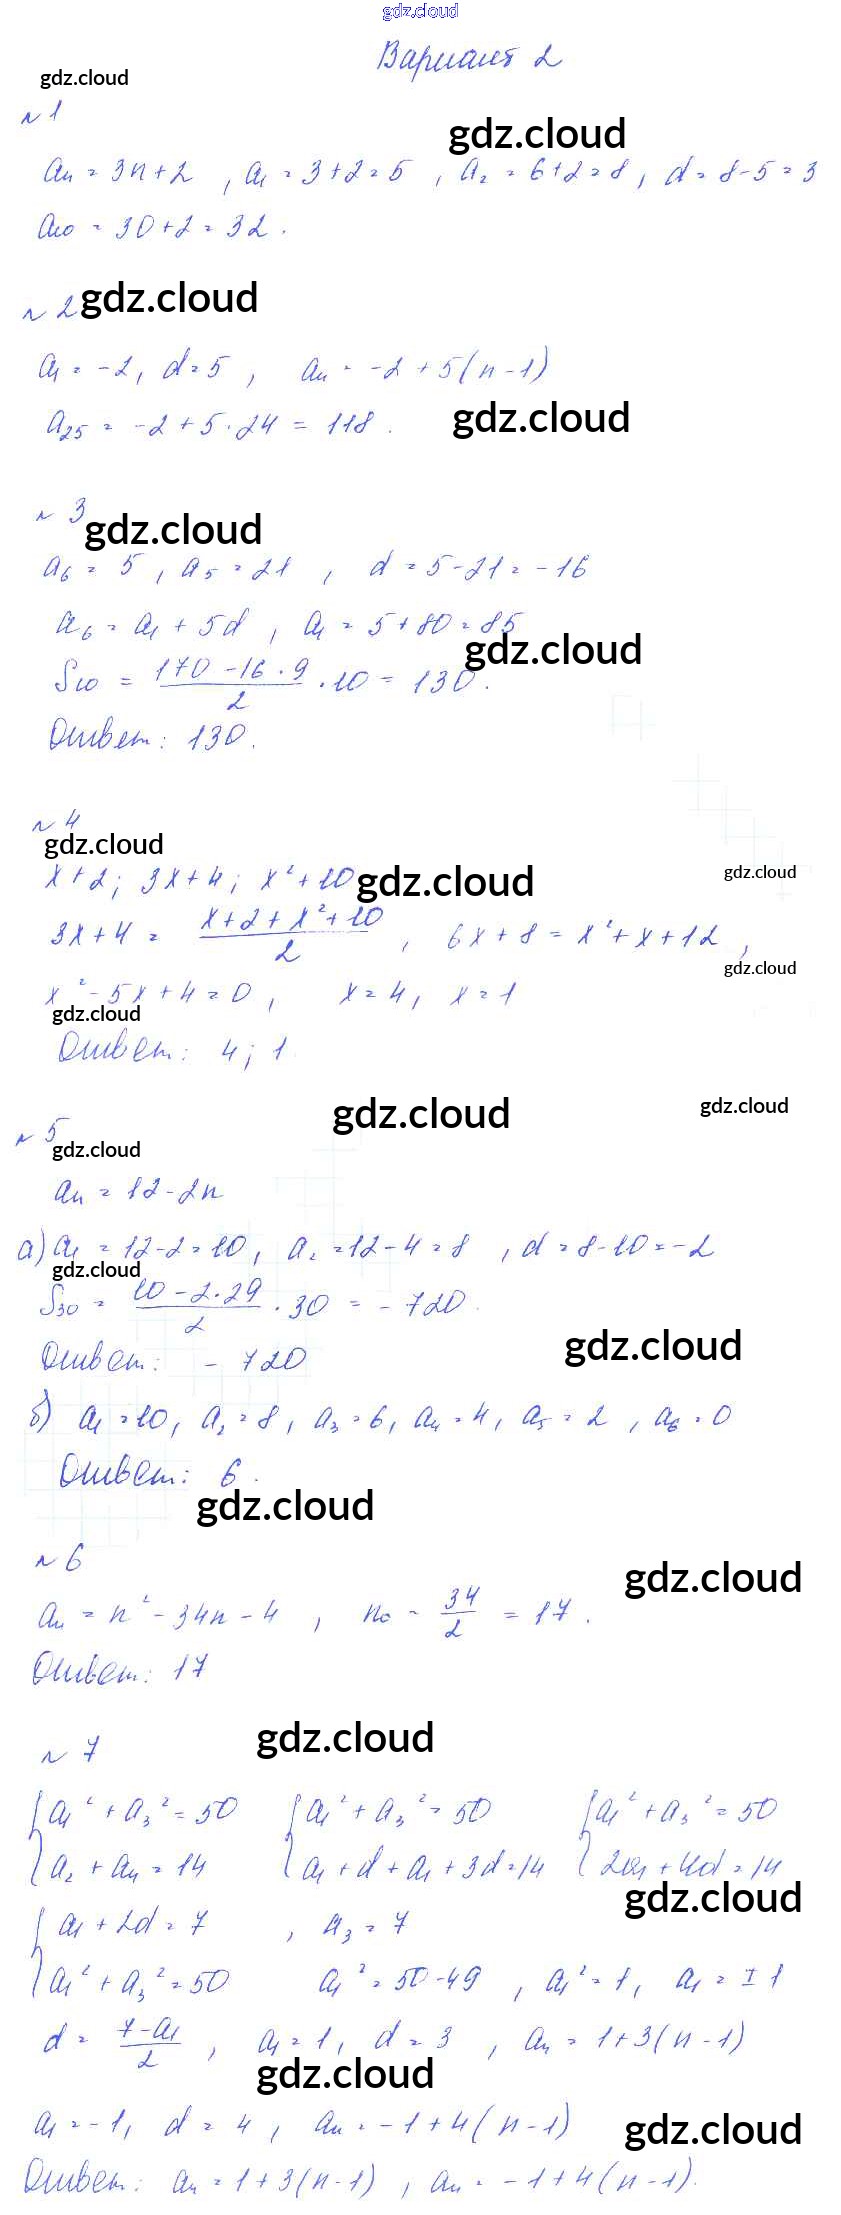 gdz.cloud
Вариант 2
gdz.cloud
№1
gdz.cloud
aₙ = 3n+2 , a₁ = 3+2=5 , a₂ = 6+2=8, d = 8-5=3
a₁₀ = 30+2=32.
№2 gdz.cloud
a₁ = -2, d=5 , aₙ = -2 + 5(n-1)
a₂₅ = -2+5·24 = 118 . gdz.cloud
№3 gdz.cloud
a₆ = 5 , a₅ = 21 , d = 5-21 = -16
a₆ = a₁ + 5d , a₁ = 5+80=85
gdz.cloud
S₁₀ = (170-16·9)/2 · 10 = 130.
Ответ: 130.
№4
gdz.cloud
x+2; 3x+4; x²+10 gdz.cloud gdz.cloud
3x+4 = (x+2+x²+10)/2 , 6x+8 = x²+x+12 ,
gdz.cloud
x²-5x+4=0 , x=4, x=1
gdz.cloud
Ответ: 4; 1
gdz.cloud gdz.cloud
№5 gdz.cloud
aₙ = 12-2n
а) a₁ = 12-2=10, a₂ =12-4=8 , d = 8-10=-2
gdz.cloud
S₃₀ = (10-2·29)/2 · 30 = -720.
gdz.cloud
Ответ: -720
б) a₁=10, a₂=8, a₃=6, aₙ=4, a₅=2 , a₆=0
Ответ: 6.
gdz.cloud
№6 gdz.cloud
aₙ = n²-34n-4 , n₀ = 34/2 = 17 .
Ответ: 17
gdz.cloud
№7
{a₁²+a₃²=50 {a₁²+a₃²=50 {a₁²+a₃²=50
{a₂+a₄=14 {a₁+d+a₁+3d=14 {2a₁+4d=14
gdz.cloud
{a₁+2d=7 , a₃=7
{a₁²+a₃²=50 a₁²=50-49 , a₁²=1, a₁=±1
d = (7-a₁)/2 , a₁=1, d=3 , aₙ = 1+3(n-1)
gdz.cloud
a₁=-1, d=4 , aₙ=-1+4(n-1)
gdz.cloud
Ответ: aₙ=1+3(n-1) , aₙ=-1+4(n-1).